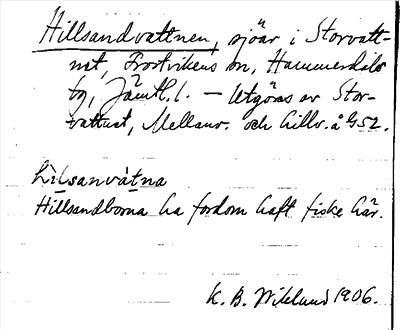 Hillsandvattnen, sjöar i Storvatt-
net, Frostvikens sn, Hammerdals
tg, Jämtl. l. — Utgöras av Stor-
vattnet, Mellanv. och Lillv. å G52.
hìlsanvàtna
Hillsandborna ha fordom haft fiske här.
K. B. Wiklund 1906.